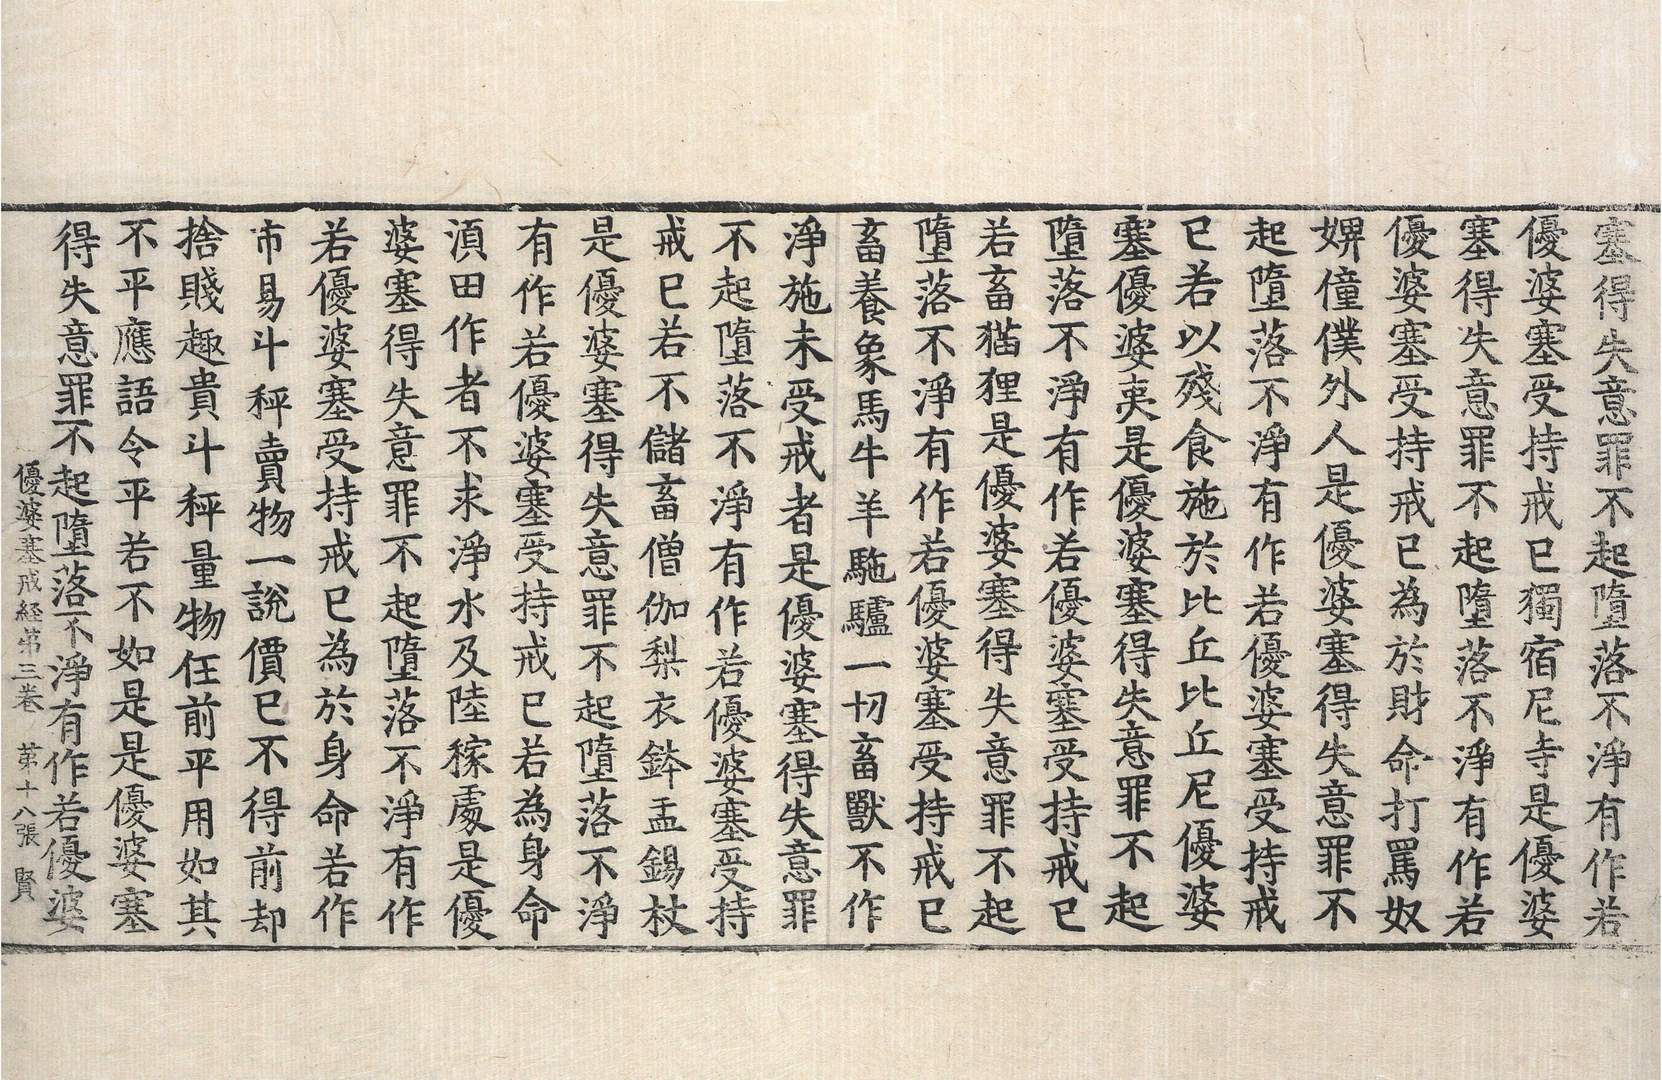 塞得失意罪不起墮落不淨有作若
優婆塞受持戒已獨宿尼寺是優婆
塞得失意罪不起墮落不淨有作若
優婆塞受持戒已為於財命打罵奴
婢僮僕外人是優婆塞得失意罪不
起墮落不淨有作若優婆塞受持戒
已若以殘食施於比丘比丘尼優婆
塞優婆夷是優婆塞得失意罪不起
墮落不淨有作若優婆塞受持戒已
若畜猫狸是優婆塞得失意罪不起
墮落不淨有作若優婆塞受持戒已
畜養象馬牛羊駞驢一切畜獸不作
淨施未受戒者是優婆塞得失意罪
不起墮落不淨有作若優婆塞受持
戒已若不儲畜僧伽梨衣鉢盂錫杖
是優婆塞得失意罪不起墮落不淨
有作若優婆塞受持戒已若為身命
湏田作者不求淨水及陸稼處是優
婆塞得失意罪不起墮落不淨有作
若優婆塞受持戒已為於身命若作
市易斗秤賣物一說價已不得前却
捨賤趣貴斗秤量物任前平用如其
不平應語令平若不如是是優婆塞
得失意罪不起墮落不淨有作若優婆
優婆塞戒経第三卷　第十八張　賢